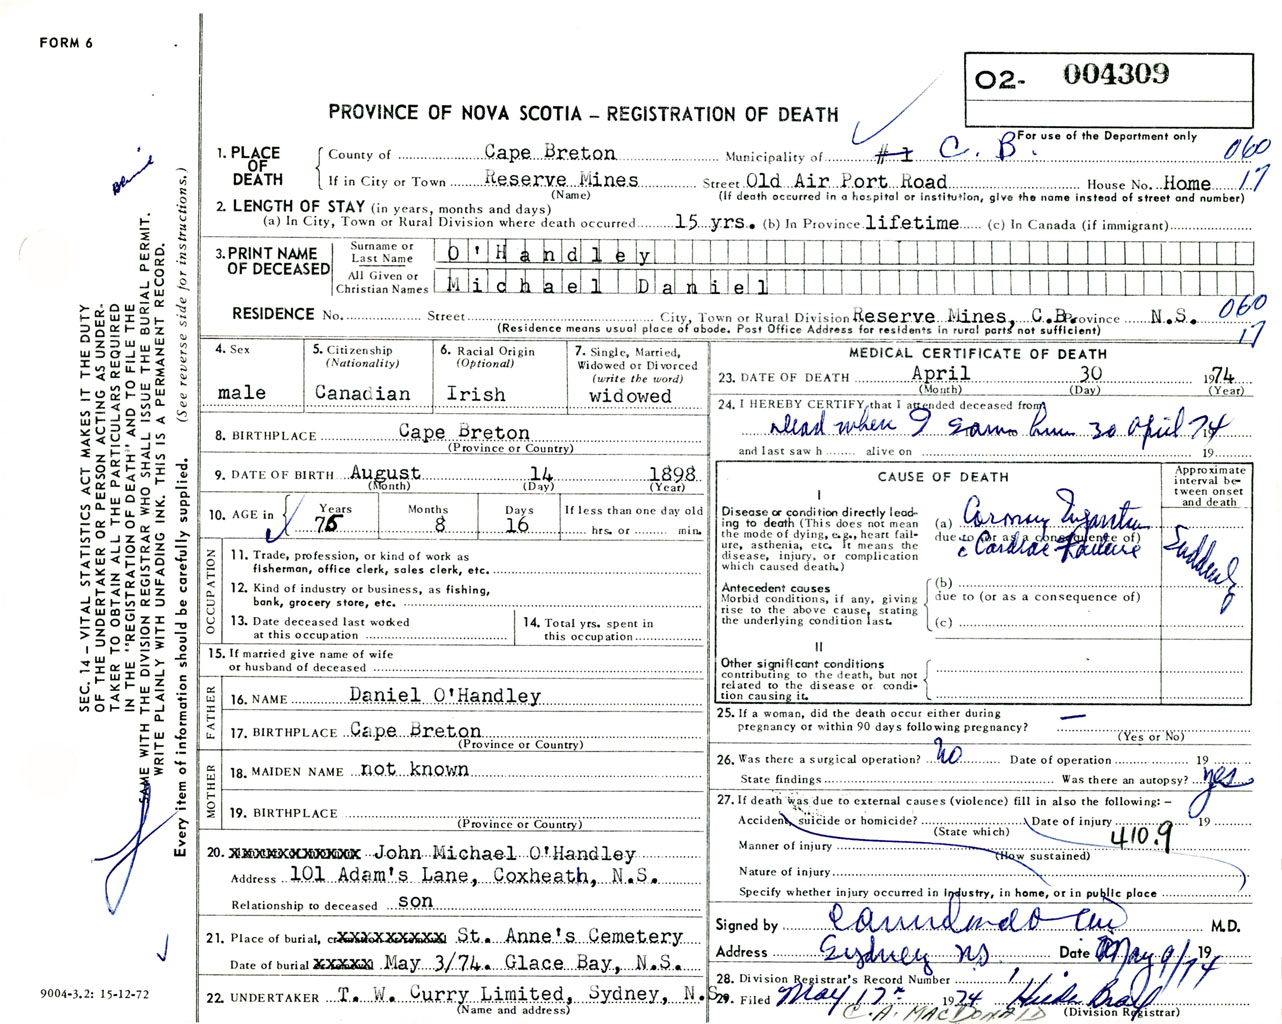 FORM 6
O2- 004309
For use of the Department only
PROVINCE OF NOVA SCOTIA – REGISTRATION OF DEATH
1. PLACE OF DEATH
County of Cape Breton Municipality of #1 C. B. 060
If in City or Town Reserve Mines Street Old Air Port Road House No. Home 17
(Name) (If death occurred in a hospital or institution, give the name instead of street and number)
2. LENGTH OF STAY (in years, months and days)
(a) In City, Town or Rural Division where death occurred 15 yrs. (b) In Province lifetime (c) In Canada (if immigrant)
3. PRINT NAME OF DECEASED
Surname or Last Name O'Handley
All Given or Christian Names Michael Daniel
RESIDENCE No. Street City, Town or Rural Division Reserve Mines, C.B. Province N.S. 060
(Residence means usual place of abode. Post Office Address for residents in rural parts not sufficient) 17
4. Sex male
5. Citizenship (Nationality) Canadian
6. Racial Origin (Optional) Irish
7. Single, Married, Widowed or Divorced (write the word) widowed
8. BIRTHPLACE Cape Breton
(Province or County)
9. DATE OF BIRTH August 14 1898
(Month) (Day) (Year)
10. AGE in Years Months 8 Days 16 If less than one day old hrs. or min.
OCCUPATION
11. Trade, profession, or kind of work as fisherman, office clerk, sales clerk, etc.
12. Kind of industry or business, as fishing, bank, grocery store, etc.
13. Date deceased last worked at this occupation
14. Total yrs. spent in this occupation
15. If married give name of wife or husband of deceased
FATHER
16. NAME Daniel O'Handley
17. BIRTHPLACE Cape Breton
(Province or County)
MOTHER
18. MAIDEN NAME not known
19. BIRTHPLACE
(Province or County)
20. xxxxxxxxxxxx John Michael O'Handley
Address 101 Adam's Lane, Coxheath, N.S.
Relationship to deceased son
21. Place of burial, xxxxxxxxxx St. Anne's Cemetery
Date of burial xxxxx May 3/74. Glace Bay, N.S.
22. UNDERTAKER T. W. Curry Limited, Sydney, N.S.
(Name and address)
MEDICAL CERTIFICATE OF DEATH
23. DATE OF DEATH April 30 1974
(Month) (Day) (Year)
24. I HEREBY CERTIFY that I attended deceased from
Dead when I saw him 30 April 74
19
and last saw h alive on 19
CAUSE OF DEATH
Approximate interval between onset and death
I
Disease or condition directly leading to death (This does not mean the mode of dying, e.g., heart failure, asthenia, etc. It means the disease, injury, or complication which caused death.)
(a) Coronary Infarction
due to (or as a consequence of)
c Cardiac Failure
Suddenly
Antecedent causes
Morbid conditions, if any, giving rise to the above cause, stating the underlying condition last.
(b)
due to (or as a consequence of)
(c)
II
Other significant conditions contributing to the death, but not related to the disease or condition causing it.
25. If a woman, did the death occur either during pregnancy or within 90 days following pregnancy? —
(Yes or No)
26. Was there a surgical operation? No Date of operation 19
State findings Was there an autopsy? yes
27. If death was due to external causes (violence) fill in also the following: –
Accident, suicide or homicide? Date of injury 19
(State which) 410.9
Manner of injury
(How sustained)
Nature of injury
Specify whether injury occurred in industry, in home, or in public place
Signed by M.D.
Address Sydney NS. Date May 9/74 19
28. Division Registrar's Record Number 1
29. Filed May 17 1974
C. A. MACDONALD (Division Registrar)
SEC. 14 – VITAL STATISTICS ACT MAKES IT THE DUTY
OF THE UNDERTAKER OR PERSON ACTING AS UNDER-
TAKER TO OBTAIN ALL THE PARTICULARS REQUIRED
IN THE "REGISTRATION OF DEATH" AND TO FILE THE
SAME WITH THE DIVISION REGISTRAR WHO SHALL ISSUE THE BURIAL PERMIT.
WRITE PLAINLY WITH UNFADING INK. THIS IS A PERMANENT RECORD.
Every item of information should be carefully supplied. (See reverse side for instructions.)
9004-3.2: 15-12-72